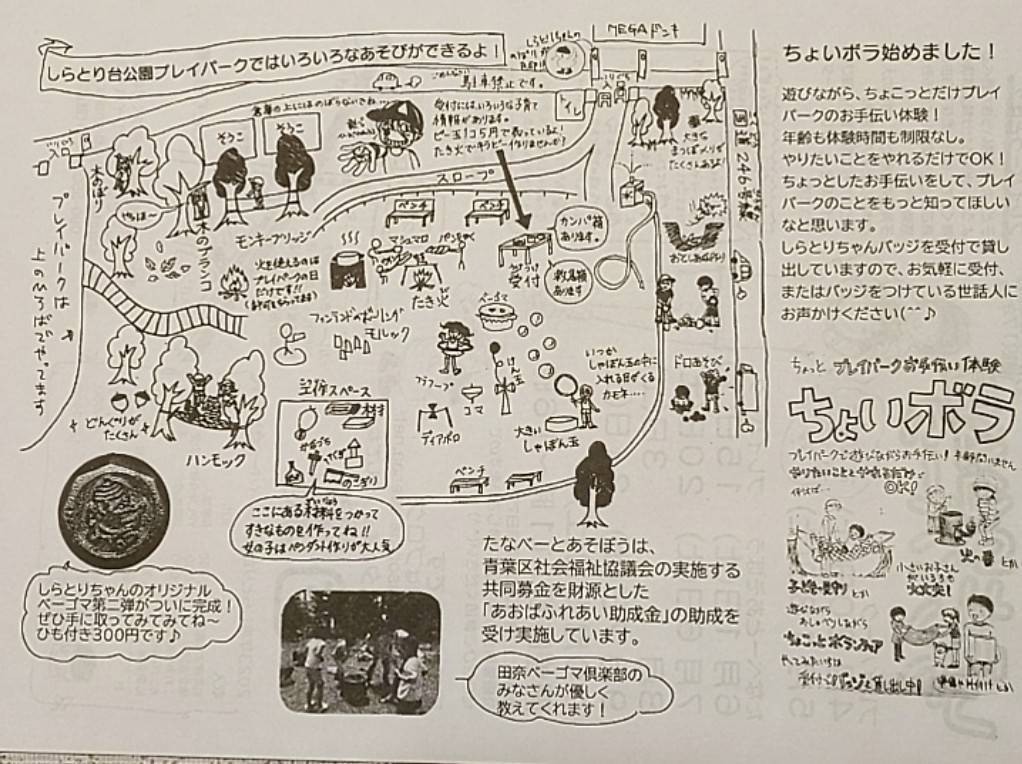 しらとり台公園プレイパークではいろいろなあそびができるよ！
MEGAドンキ
しらとりちゃんの
のぼりが
目印!!
ごめんなさい
駐車禁止です。
入口
トイレ
倉庫の上にはのぼらないでね…
そうこ
そうこ
受付にはいろいろな子育て
情報があります。
ビー玉1コ5円で売っているよ！
たき火でキラキラビー玉作りませんか？
国道246号線
大きな
まつぼっくりが
たくさんあるよ！
入口
木のぼり
やっほー
木のブランコ
スロープ
モンキーブリッジ
ベンチ
ベンチ
カンパ箱
あります。
受付
救急箱
あります
プレイパークは
上のひろばでやってます
火を使えるのは
プレイパークの日
だけです!!
（許可をもらってます）
マシュマロ
パン
たき火
おとしあなほり
フィンランドのボーリング
モルック
ベーゴマ
フラフープ
けん玉
コマ
ディアボロ
いつか
しゃぼん玉の中に
入れる日がくる
カモネ…
大きい
しゃぼん玉
ドロあそび
どんぐりが
たくさん
ハンモック
工作スペース
木材
かなづち
くぎ
のこぎり
ベンチ
ここにある材料をつかって
ざいりょう
すきなものを作ってね!!
女の子はペンダント作りが大人気
しらとりちゃんのオリジナル
ベーゴマ第二弾がついに完成！
ぜひ手に取ってみてみてね～
ひも付き300円です♪
たなべーとあそぼうは、
青葉区社会福祉協議会の実施する
共同募金を財源とした
「あおばふれあい助成金」の助成を
受け実施しています。
田奈ベーゴマ倶楽部の
みなさんが優しく
教えてくれます！
ちょいボラ始めました！
遊びながら、ちょこっとだけプレイ
パークのお手伝い体験！
年齢も体験時間も制限なし。
やりたいことをやれるだけでOK！
ちょっとしたお手伝いをして、プレイ
パークのことをもっと知ってほしい
なと思います。
しらとりちゃんバッジを受付で貸し
出していますので、お気軽に受付、
またはバッジをつけている世話人に
お声かけください(^^♪
ちょっと プレイパークお手伝い体験
ちょいボラ
プレイパークで遊びながらお手伝い！年齢問いません
やりたいことをやれるだけで
OK！
例えば…
火の番 とか
子どもの見守り とか
小さいお子さん
がいる方も
大丈夫！
遊びながら
おしゃべりしながら
ちょこっとボランティア
やってみたい方は
受付でバッジを貸し出し中！